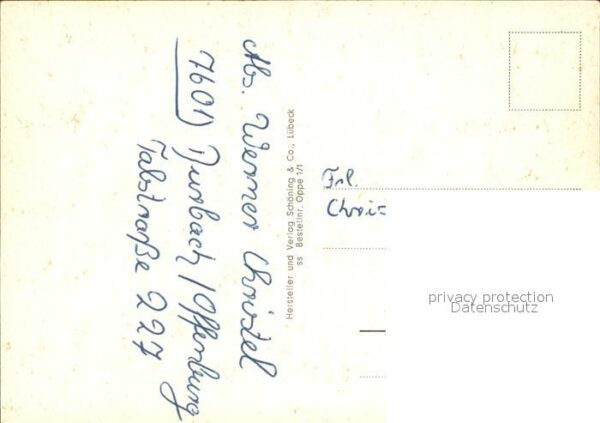 Abs. Werner Christel
7601) Durbach / Offenburg
Talstraße 227
Hersteller und Verlag Schöning & Co., Lübeck
ss Bestellnr. Oppe 1/1
Frl.
Chris
privacy protection
Datenschutz